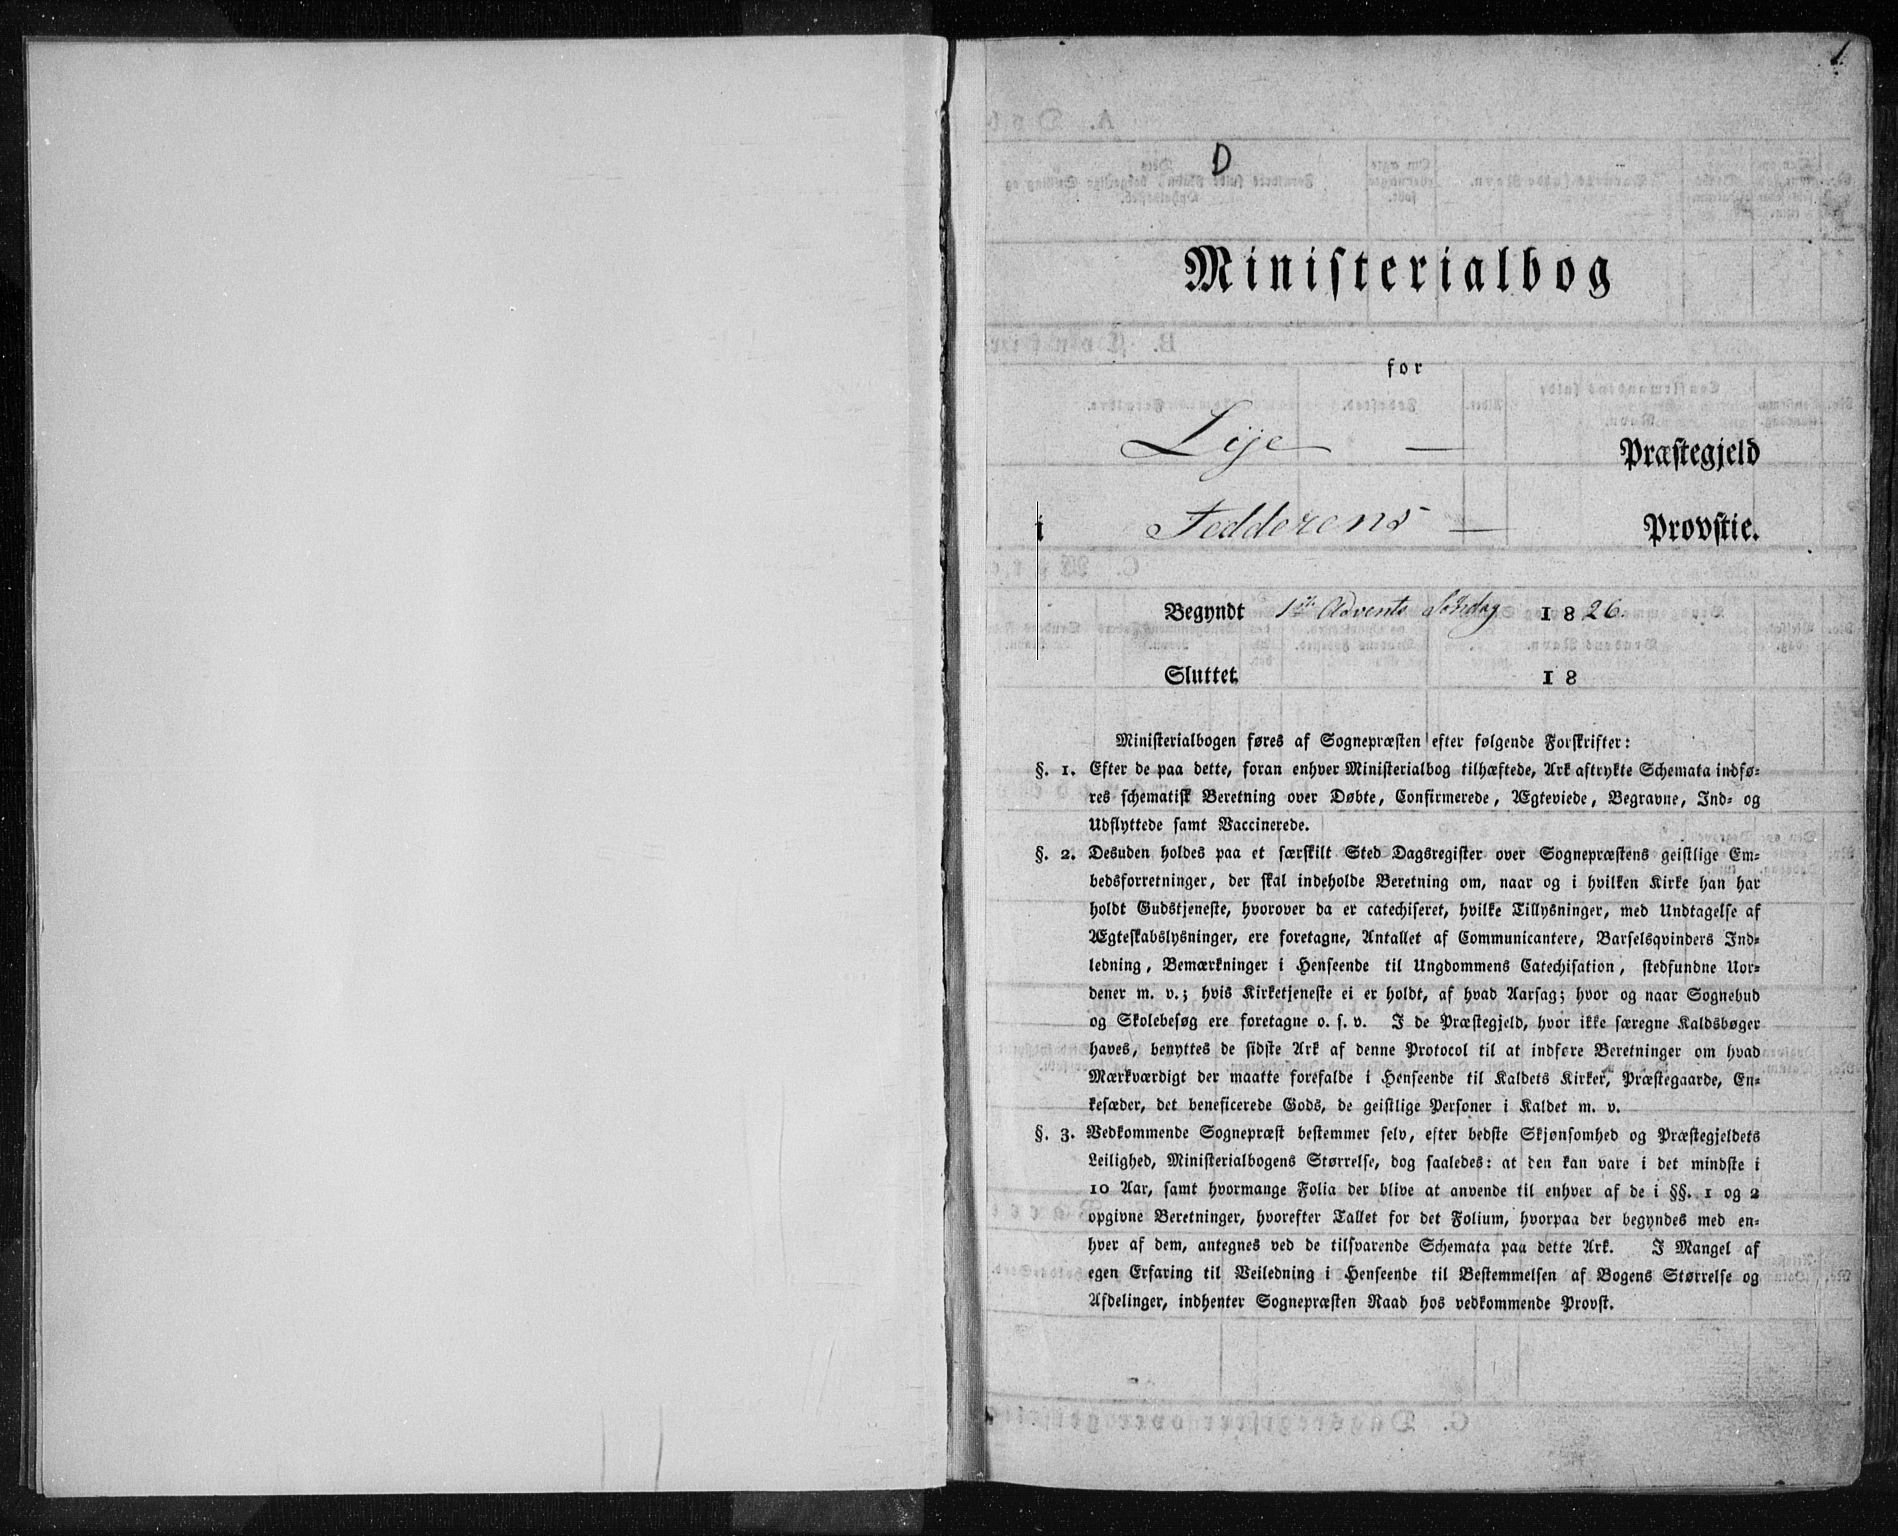 1.
D
Ministerialbog
for
Lÿe — Præstegjeld
i Jedderens — Provstie.
Begyndt 1ste Advents Søndag 1826.
Sluttet 18
Ministerialbogen føres af Sognepræsten efter følgende Forskrifter:
§. 1. Efter de paa dette, foran enhver Ministerialbog tilhæftede, Ark aftrykte Schemata indfø-
res schematisk Beretning over Døbte, Confirmerede, Ægteviede, Begravne, Ind- og
Udflyttede samt Vaccinerede.
§. 2. Desuden holdes paa et særskilt Sted Dagsregister over Sognepræstens geistlige Em-
bedsforretninger, der skal indeholde Beretning om, naar og i hvilken Kirke han har
holdt Gudstjeneste, hvorover da er catechiseret, hvilke Tillysninger, med Undtagelse af
Ægteskabslysninger, ere foretagne, Antallet af Communicantere, Barselqvinders Ind-
ledning, Bemærkninger i Henseende til Ungdommens Catechisation, stedfundne Uor-
dener m. v.; hvis Kirketjeneste ei er holdt, af hvad Aarsag; hvor og naar Sognebud
og Skolebesøg ere foretagne o. s. v. I de Præstegjeld, hvor ikke særegne Kaldsbøger
haves, benyttes de sidste Ark af denne Protocol til at indføre Beretninger om hvad
Mærkværdigt der maatte forefalde i Henseende til Kaldets Kirker, Præstegaarde, En-
kesæder, det beneficerede Gods, de geistlige Personer i Kaldet m. v.
§. 3. Vedkommende Sognepræst bestemmer selv, efter bedste Skjønsomhed og Præstegjeldets
Leilighed, Ministerialbogens Størrelse, dog saaledes: at den kan vare i det mindste i
10 Aar, samt hvormange Folia der blive at anvende til enhver af de i §§. 1 og 2
opgivne Beretninger, hvorefter Tallet for det Folium, hvorpaa der begyndes med en-
hver af dem, antegnes ved de tilsvarende Schemata paa dette Ark. I Mangel af
egen Erfaring til Veiledning i Henseende til Bestemmelsen af Bogens Størrelse og
Afdelinger, indhenter Sognepræsten Raad hos vedkommende Provst.